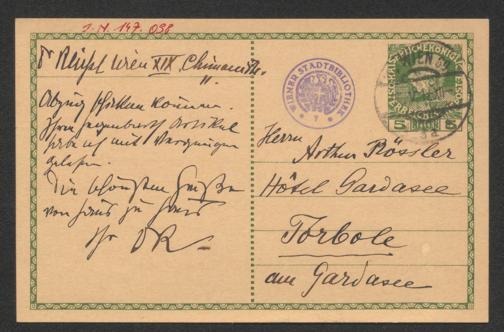 J.N. 147.038
Dr Wien XIX. Chimanistr.
11.
schicken können.
Ihren Artikel
habe ich mit Vergnügen
gelesen.
Die schönsten Grüße
von Haus zu Haus
Ihr OR
WIENER STADTBIBLIOTHEK
WIEN
5
Herrn
Arthur Rössler
Hôtel Gardasee
Torbole
am Gardasee